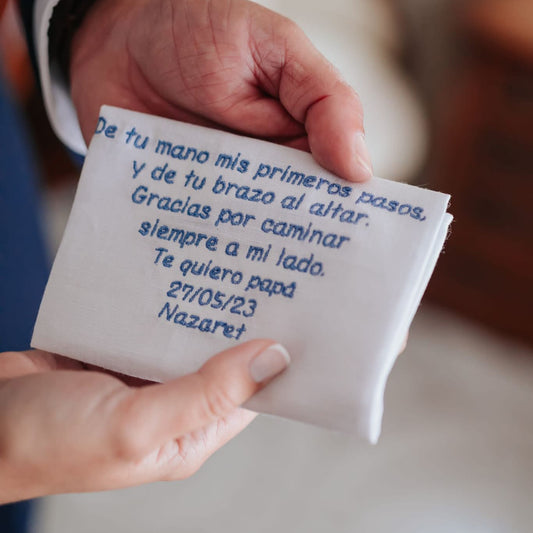 De tu mano mis primeros pasos,
Y de tu brazo al altar.
Gracias por caminar
siempre a mi lado.
Te quiero papá
27/05/23
Nazaret